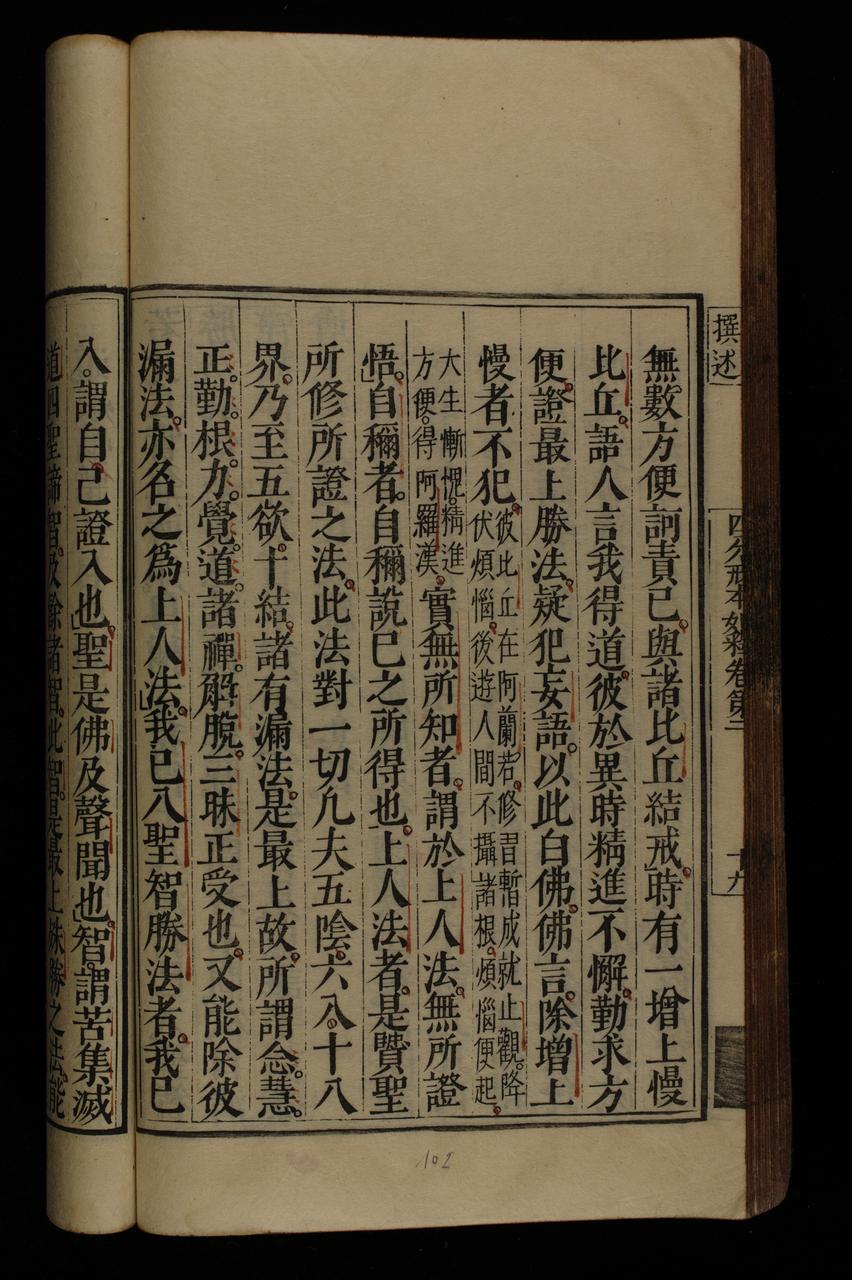 撰述
四分戒本如釋卷第三
十九
無數方便訶責已。與諸比丘結戒。時有一增上慢
比丘。語人言我得道。彼於異時精進不懈。勤求方
便。證最上勝法。疑犯妄語。以此白佛。佛言。除增上
慢者不犯。
彼比丘在阿蘭若。修習暫成就止觀。降
伏煩惱。後遊人間不攝諸根。煩惱便起。
大生慚愧。精進
方便。得阿羅漢。
實無所知者。謂於上人法。無所證
悟。自稱者。自稱說己之所得也。上人法者。是賢聖
所修所證之法。此法對一切凡夫五陰。六入。十八
界。乃至五欲。十結。諸有漏法。是最上故。所謂念。慧。
正。勤。根。力。覺。道。諸禪。解脫。三昧。正受也。又能除彼
漏法。亦名之為上人法。我已入聖智勝法者。我已
入。謂自己證入也。聖是佛及聲聞也。智。謂苦集滅
道四聖諦智。及餘諸智。此智。是最上殊勝之法。能
102